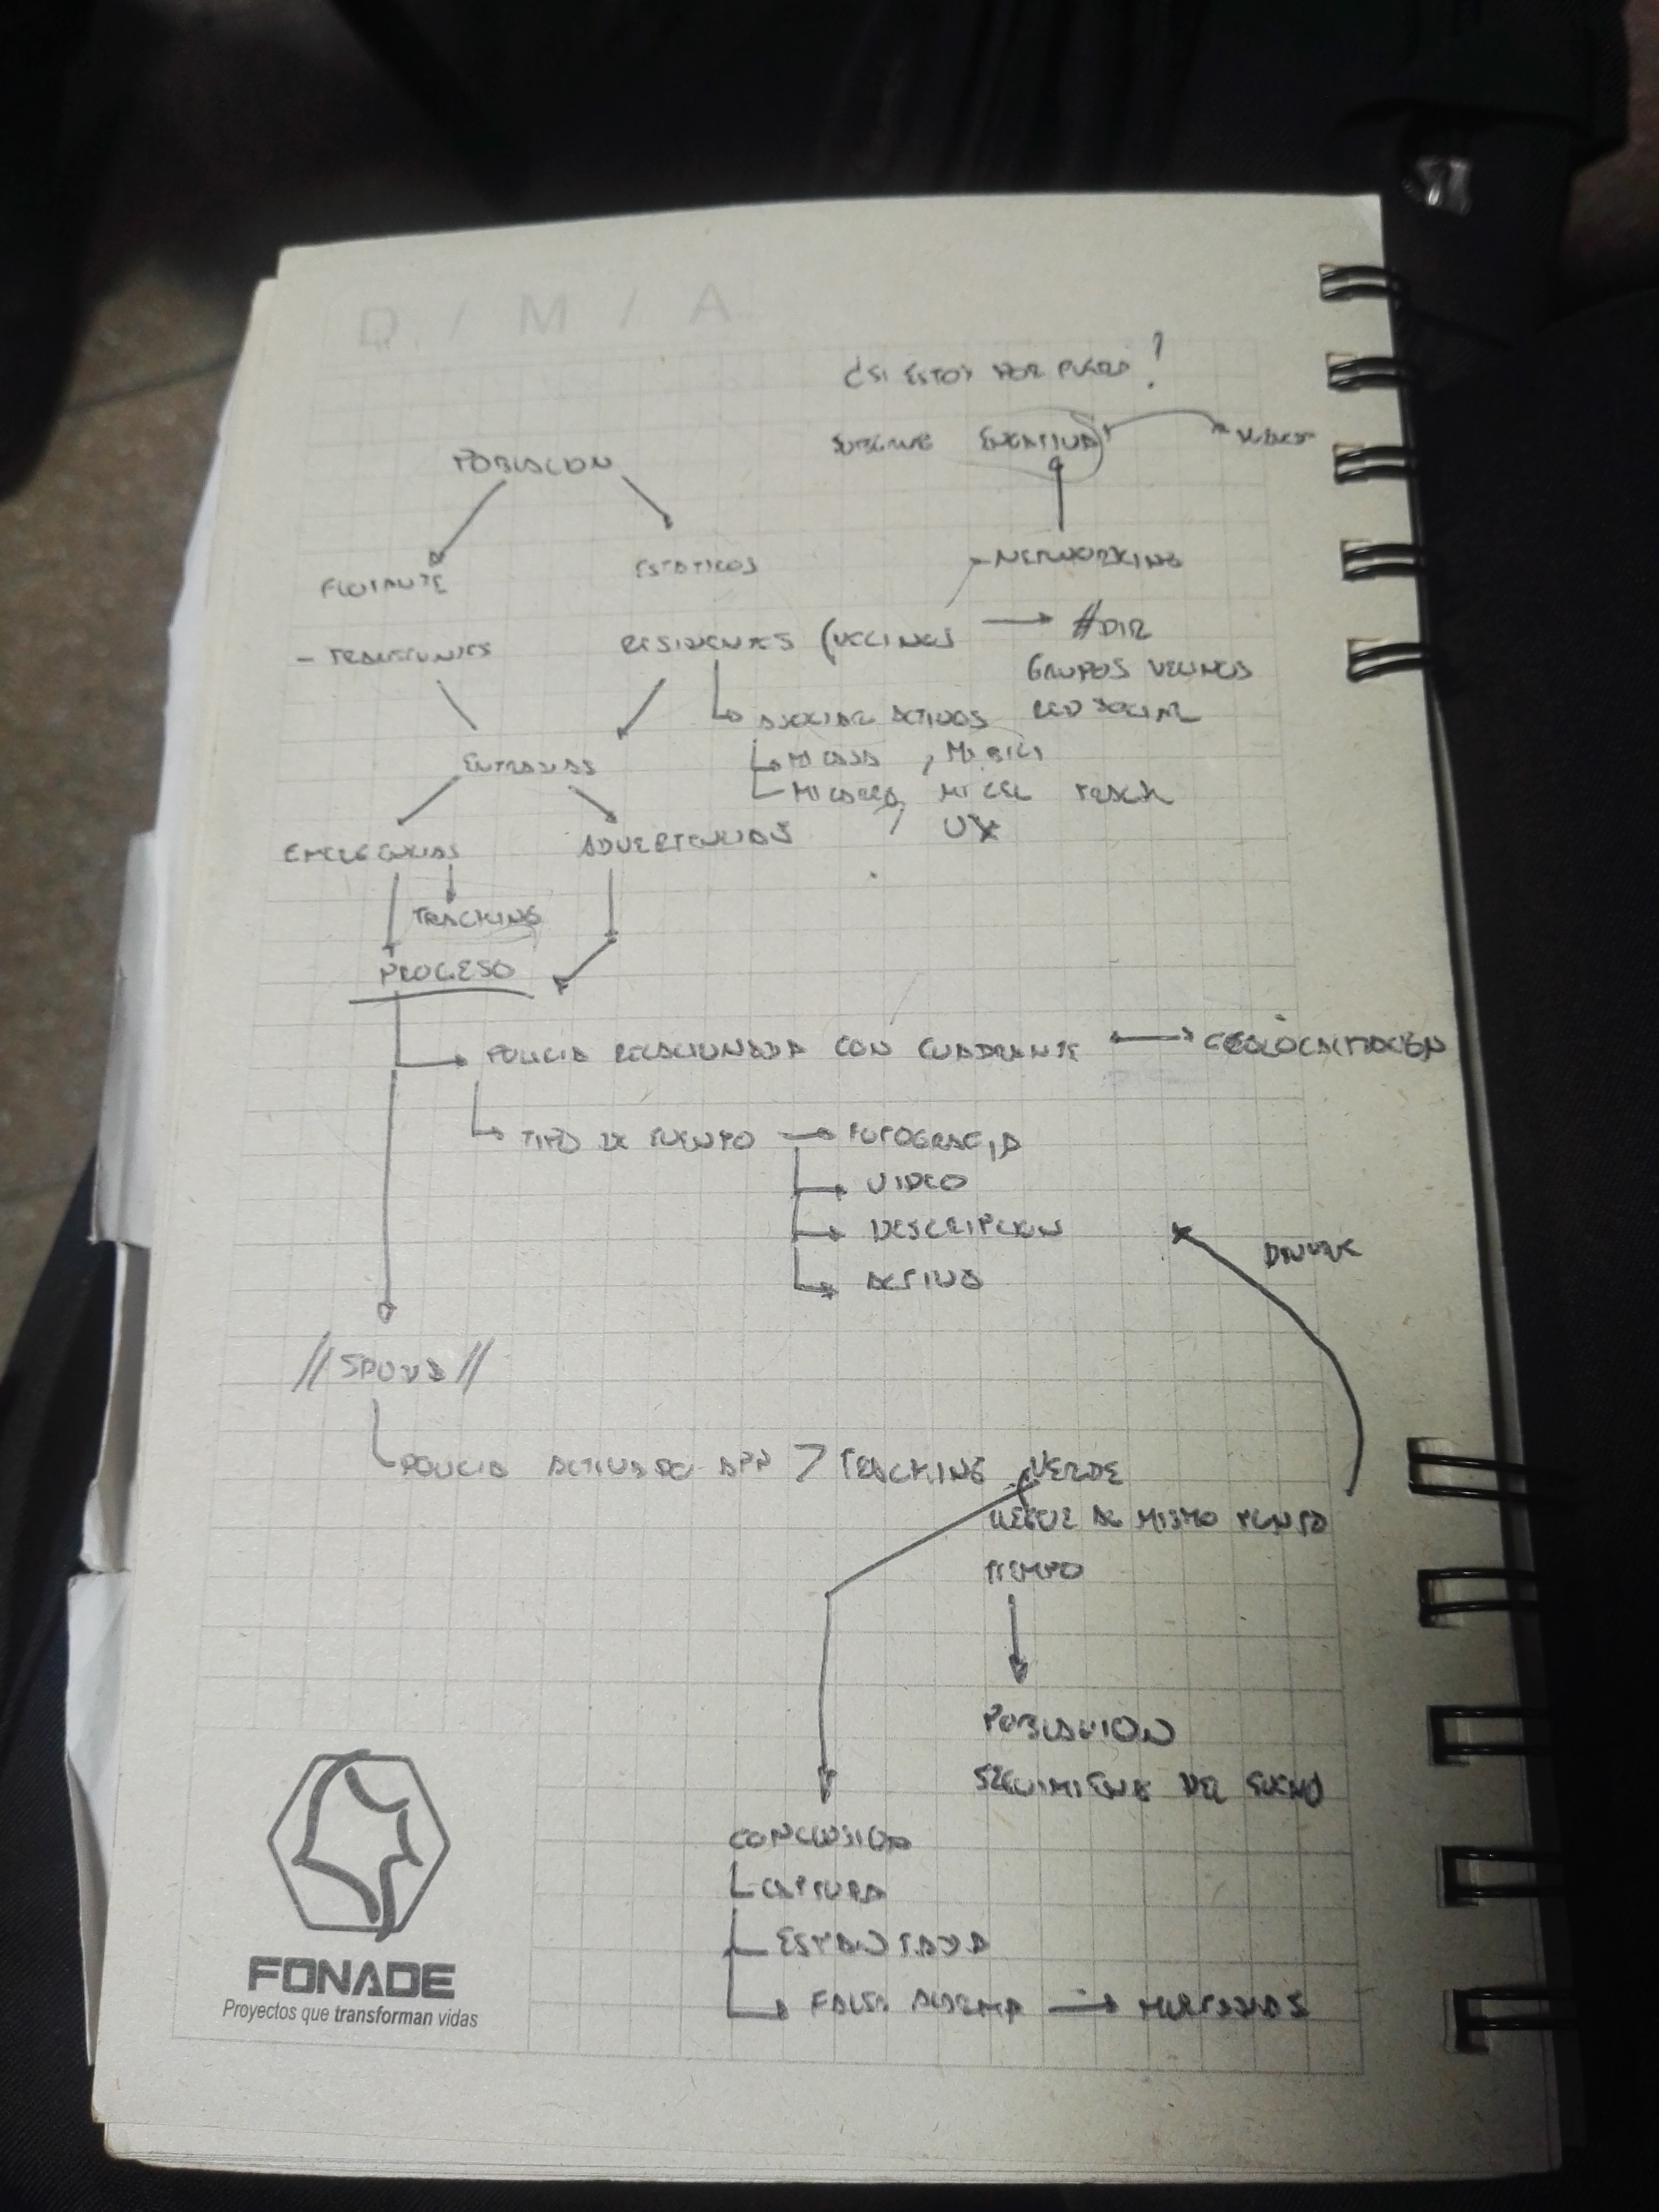 D / M / A
¿SI ESTOY POR FUERA?
POBLACION
FLOTANTE
ESTATICOS
NETWORKING
- TRANSEUNTES
RESIDENTES (VECINOS
#DIR
GRUPOS VECINOS
RED SOCIAL
ASOCIAR ACTIVOS
MI CASA, MI BICI
MI CEL
UX
ENTRADAS
EMERGENCIAS
ADVERTENCIAS
TRACKING
PROCESO
POLICIA RELACIONADA CON CUADRANTE
GEOLOCALIZACION
TIPO DE EVENTO
FOTOGRAFIA
VIDEO
DESCRIPCION
ACTIVO
// SALIDA //
POLICIA ACTIVADO APP > TRACKING VERDE
MISMO PUNTO
TIEMPO
POBLACION
SEGUIMIENTO DEL EVENTO
CONCLUSION
CAPTURA
FALSA ALARMA
FONADE
Proyectos que transforman vidas